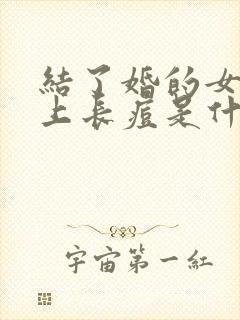 結了婚的女
上長痘是什
宇宙第一紅